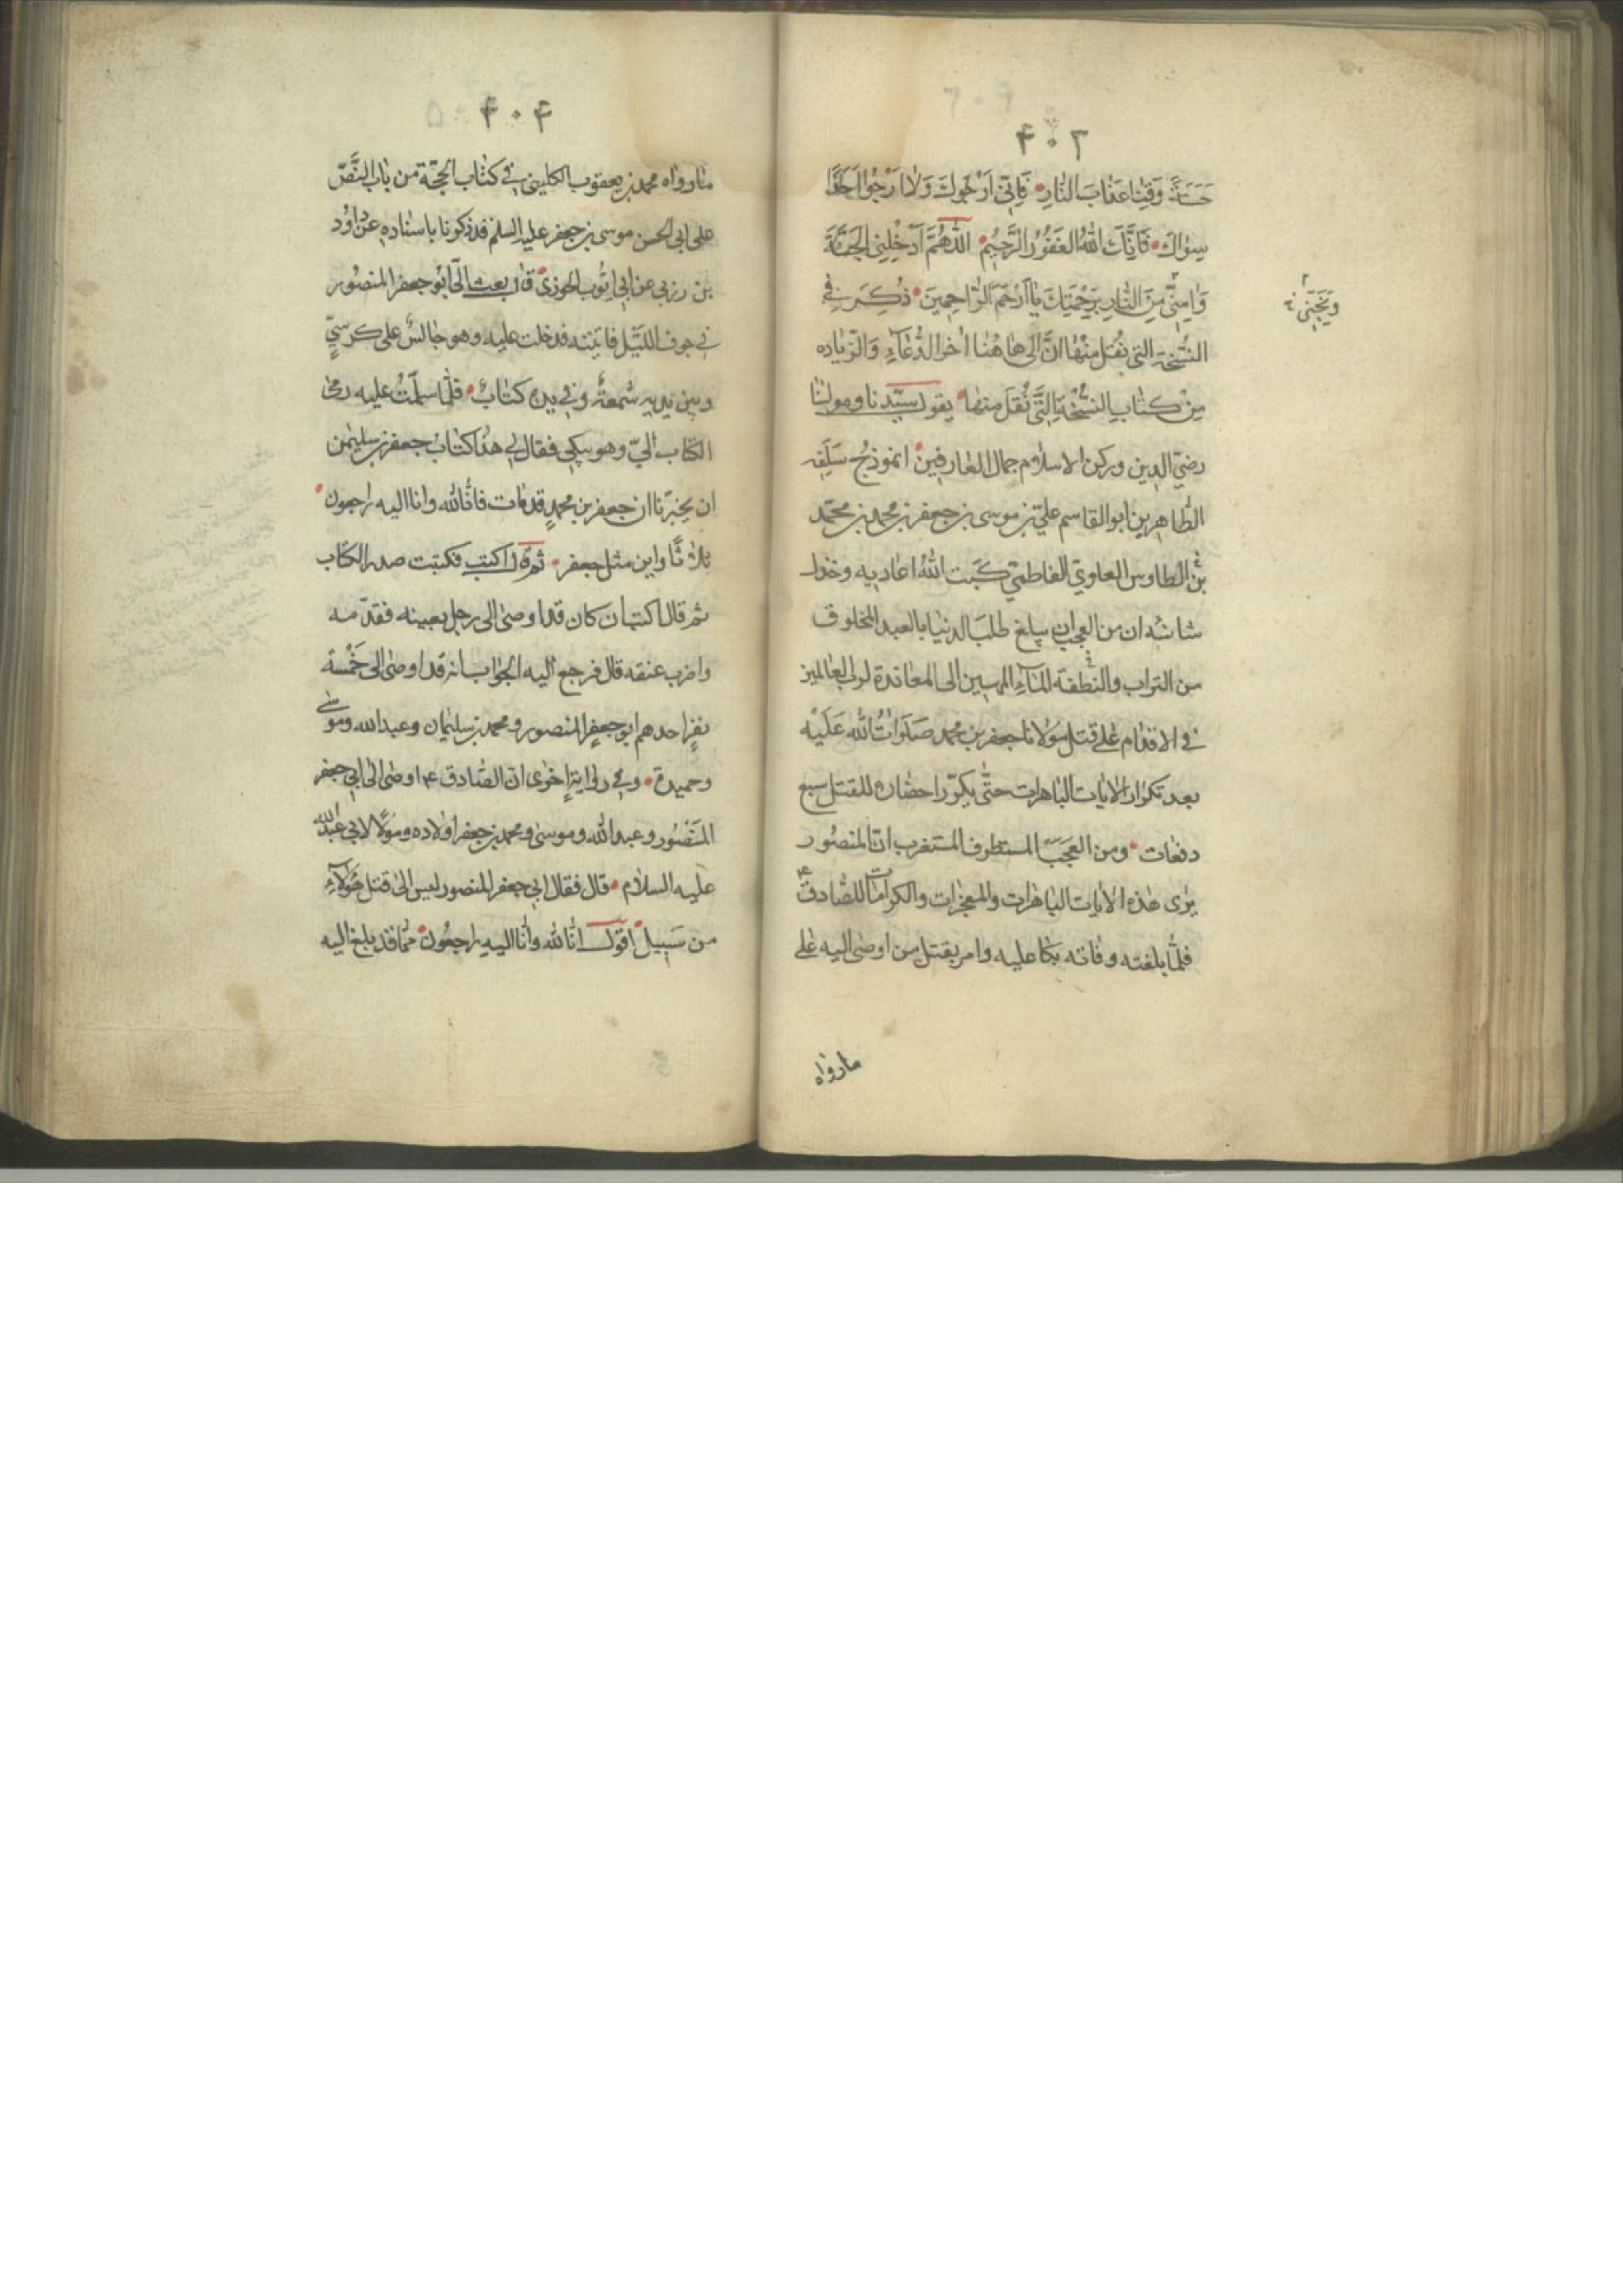 ۴۰۳
حَسَنَةً وَقِنٰا عَذٰابَ النّٰارِ فَاِنّي اَرْجُوكَ وَلٰا اَرْجُوا اَحَدًا
سِوٰاكَ فَاِنَّكَ اللّٰهُ الغَفُورُ الرَّحِيْم اللّٰهُمَّ اَدْخِلْنِي الجَنَّةَ
وَ مِنَ النّٰارِ بِرَحْمَتِكَ يٰا اَرْحَمَ الرّٰاحِمِينَ ذُكِرَ فِي
وَنَجِّنِي
النُّسْخَةِ التي نُقِلَ مِنْهٰا انَّ الٰى هٰاهُنٰا اٰخر الدُّعٰآءِ وَالزيٰاده
مِنْ كتٰاب النسْخَةِ الَّتي نُقِلَ منهٰا يقول سيّدنا ومولٰنٰا
رضيّ الدين وركن الاسلٰام جمال العٰارفين انموذج سَلَفِه
الطّٰاهرين ابو القاسم عليّ بن موسى بن جعفر بن محمد بن محمّد
بن الطاوس العلويّ الفاطميّ كَبَت اللّٰهُ اعٰاديه وخذل
شانئه ان من العجب ان يبلغ طلبَ الدنيٰا بالعبد المخلوق
من التراب والنّطفة المٰآءِ المهين الى المعٰاندة لرب العٰالمين
في الاقدٰام عَلٰى قتل مَوْلانا جعفر بن محمد صَلَوٰاتُ اللّٰه عَلَيْه
بعد تكرٰار الاٰيٰات البٰاهرات حتّٰى يكرّر احضٰاره للقتل سبع
دفعٰات ومن العَجَب المستطرف المستغرب انّ المنصُور
يرٰى هٰذه الاٰيات البٰاهرٰات والمعجزات والكرامٰات للصّٰادق ع
فلمّٰا بلغته وفٰاته بكا عليه وامر بقتل من اوصٰى اليه عَلٰى
مارواه
۴۰۴
مٰا روٰاه محمد بن يعقوب الكليني في كتٰاب الحجّة من بٰاب النَّصّ
على ابي الحسن موسى بن جعفر عليه السلم فذكر باسنٰاده عن دٰاوُد
بن رزبي عن ابي ايّوب الخوزي قال بعث الَيّ ابُو جعفر المنصُور
في جوف اللّيل فاتيته فدخلت عليه وهو جٰالسٌ على كرسيٍّ
وبين يديه شمعةٌ وفي يده كتٰابٌ فلمّا سلّمتُ عليه رمٰى
الكتٰاب اليّ وهو يبكي فقال لي هذا كتٰاب جعفر بن سليمن
ان يخبرنا ان جعفر بن محمدٍ قد مٰات فانّا للّٰه وانا اليه راجعون
ثلاثًا واين مثل جعفر ثم قال اكتب فكتبت صدر الكتٰاب
ثم قال اكتب ان كان قد اوصٰى الى رجل بعينه فقدّمه
واضرب عنقه قال فرجع اليه الجوٰاب انه قد اوصٰى الى خَمْسة
نفرٍ احدهم ابو جعفر المنصور ومحمد بن سليمٰان وعبد اللّٰه وموسى
وحميدة وفي روٰاية اخرٰى ان الصّٰادق ع اوصٰى الى ابي جعفر
المَنْصُور وعبد اللّٰه وموسىٰ ومحمد بن جعفر اولٰاده ومولًا لابي عبد اللّٰه
عليه السلام قال فقال ابي جعفر المنصور ليس الىٰ قتل هٰؤُلاءِ
من سَبيل اقول انّا للّٰه وانّا اليه راجعُون ممّٰا قد بلغ اليه